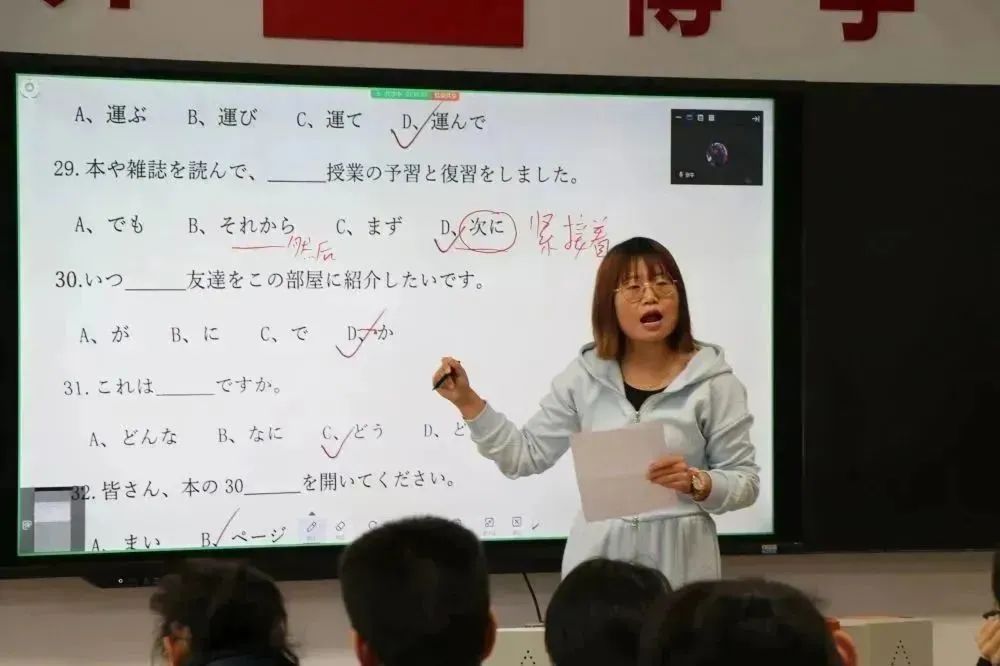 博学
A、運ぶ B、運び C、運て D、運んで
29.本や雑誌を読んで、_____授業の予習と復習をしました。
A、でも B、それから C、まず D、次に 紧接着
然后
30.いつ_____友達をこの部屋に紹介したいです。
A、が B、に C、で D、か
31.これは_____ですか。
A、どんな B、なに C、どう D、ど
32.皆さん、本の30_____を開いてください。
A、まい B、ページ